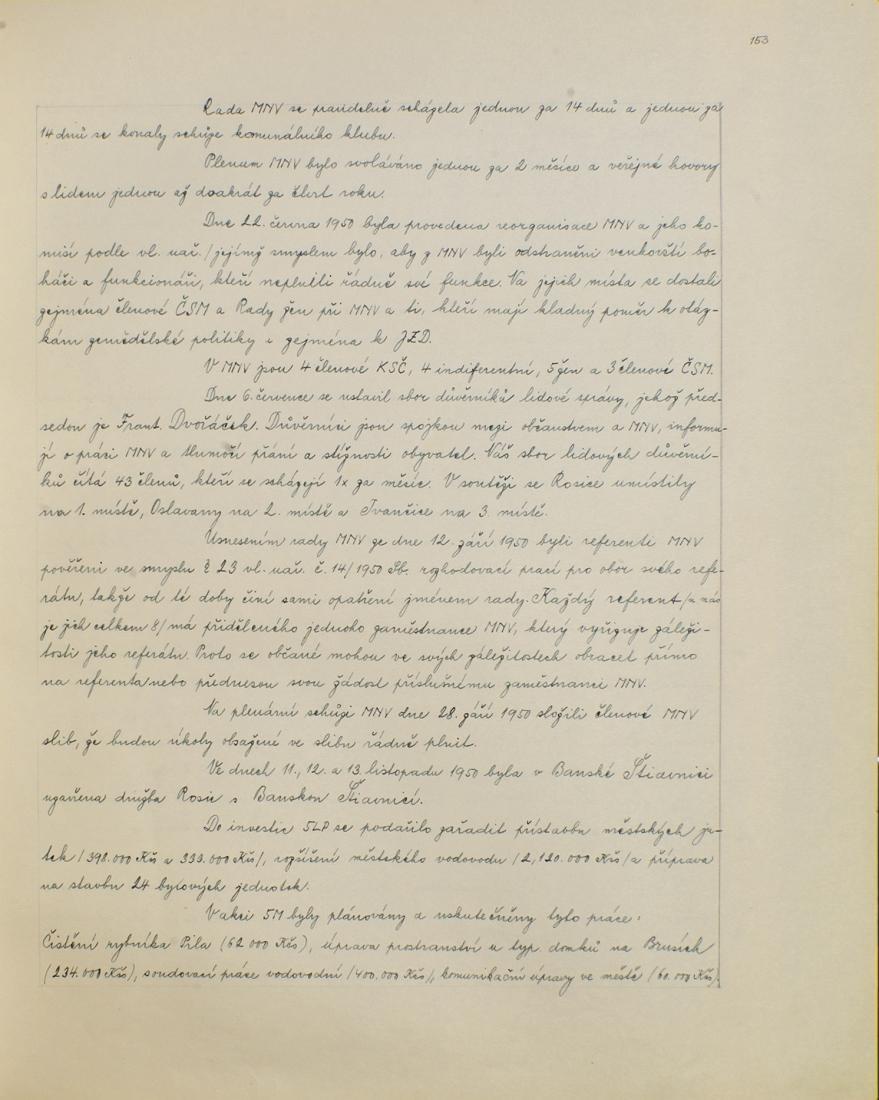 153
Rada MNV se pravidelně scházela jednou za 14 dnů a jednou za
14 dnů se konaly schůze komunálního klubu.
Plenum MNV bylo svoláváno jednou za 2 měsíce a veřejné hovory
s lidem jednou až dvakrát za čtvrt roku.
Dne 22. června 1950 byla provedena reorganisace MNV a jeho ko-
misí podle vl. nař. / jejímž smyslem bylo, aby z MNV byli odstraněni venkovští bo-
háči a funkcionáři, kteří neplnili řádně své funkce. Na jejich místa se dostali
zejména členové ČSM a Rady žen při MNV a ti, kteří mají kladný poměr k otáz-
kám zemědělské politiky a zejména k JZD.
V MNV jsou 4 členové KSČ, 4 indiferentní, 5 žen a 3 členové ČSM.
Dne 6. července se ustavil sbor důvěrníků lidové správy, jehož před-
sedou je Frant. Dvořáček. Důvěrníci jsou spojkou mezi občanstvem a MNV, informu-
jí o práci MNV a tlumočí přání a stížnosti obyvatel. Náš sbor lidových důvěrní-
ků čítá 43 členů, kteří se scházejí 1x za měsíc. V soutěži se Rosice umístily
na 1. místě, Oslavany na 2. místě a Ivančice na 3. místě.
Usnesením rady MNV ze dne 12. září 1950 byli referenti MNV
pověřeni ve smyslu § 23 vl. nař. č. 14/1950 Sb. rozhodovací prací pro obor svého refe-
rátu, takže od té doby činí sami opatření jménem rady. Každý referent /u nás
je jich celkem 8/ má přiděleného jednoho zaměstnance MNV, který vyřizuje záleži-
tosti jeho referátu. Proto se občané mohou ve svých záležitostech obracet přímo
na referenta nebo přednesou svou žádost příslušnému zaměstnanci MNV.
Na plenární schůzi MNV dne 28. září 1950 složili členové MNV
slib, že budou úkoly obsažené ve slibu řádně plnit.
Ve dnech 11., 12. a 13. listopadu 1950 byla v Banské Štiavnici
uzavřena družba Rosic s Banskou Štiavnicí.
Do investic 5LP se podařilo zařadit přístavbu městských ja-
tek /398.000 Kčs a 333.000 Kčs/, rozšíření městského vodovodu /2,120.000 Kčs/ a příprava
na stavbu 24 bytových jednotek.
V akci 5M byly plánovány a uskutečněny tyto práce:
Čistění rybníka Pila (62 000 Kčs), úprava prostranství u typ. domků na Brusích
(234.000 Kčs), sondovací práce vodovodní /400.000 Kčs/, komunikační úpravy ve městě /60.000 Kčs/.